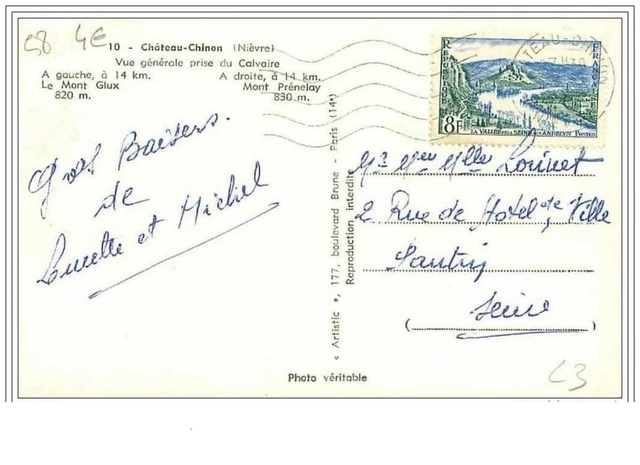 58 4€
10 - Château-Chinon (Nièvre)
Vue générale prise du Calvaire
A gauche, à 14 km.
Le Mont Glux
820 m.
A droite, à 14 km.
Mont Prénelay
830 m.
REPUBLIQUE FRANÇAISE
8F
LA VALLÉE DE LA SEINE AUX ANDELYS
Gros Baisers.
de
Lucette et Michel
« Artistic », 177, boulevard Brune - Paris (14e)
Reproduction interdite
Mr Mme Mlle Louvet
2 Rue de Hotel de Ville
Pantin
(Seine)
Photo véritable